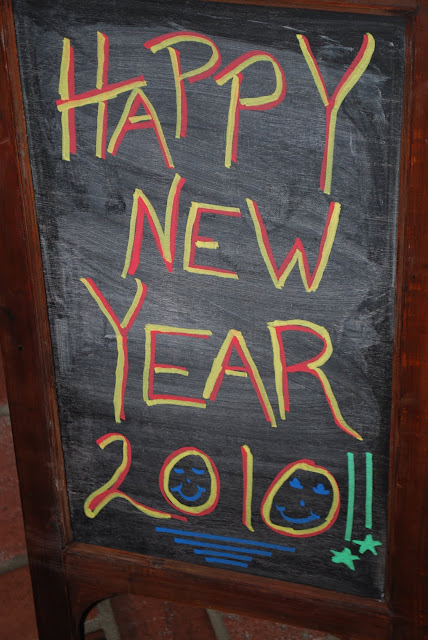 HAPPY
NEW
YEAR
2010!!